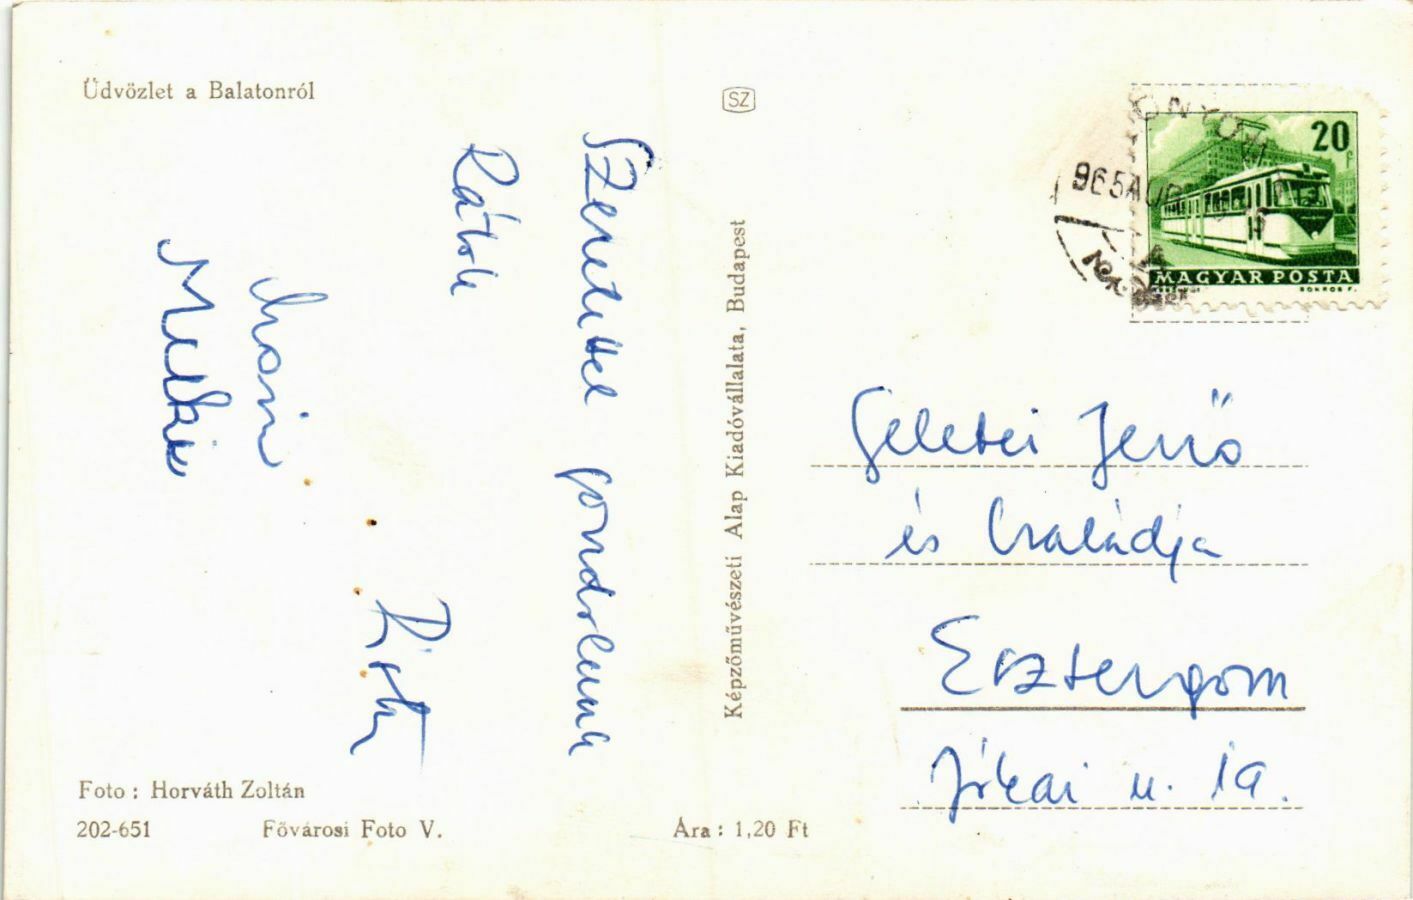 Üdvözlet a Balatonról
SZ
Szeretettel gondolunk
Rátok
Pisti
Mosi
Melki
Képzőművészeti Alap Kiadóvállalata, Budapest
965 AUG
20 f
MAGYAR POSTA
Geletei Jenő
és Családja
Esztergom
Jókai u. 1a.
Foto: Horváth Zoltán
202-651 Fővárosi Foto V. Ára: 1,20 Ft